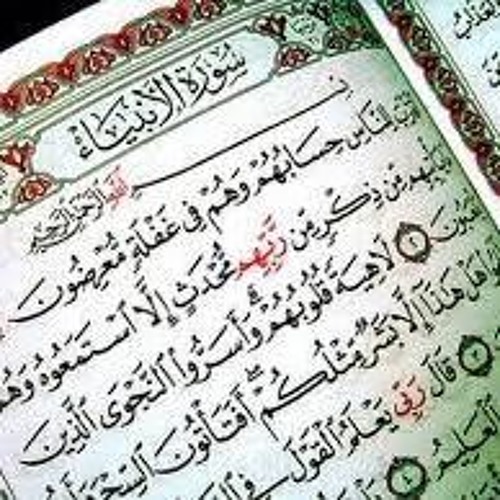 سُورَةُ الْأَنْبِيَاءِ
بِسْمِ اللَّهِ الرَّحْمَٰنِ الرَّحِيمِ
لِلنَّاسِ حِسَابُهُمْ وَهُمْ فِي غَفْلَةٍ مُّعْرِضُونَ
مِّن ذِكْرٍ مِّن رَّبِّهِم مُّحْدَثٍ إِلَّا ٱسْتَمَعُوهُ وَهُمْ
لَاهِيَةً قُلُوبُهُمْ ۗ وَأَسَرُّوا۟ ٱلنَّجْوَى ٱلَّذِينَ
هَلْ هَٰذَآ إِلَّا بَشَرٌ مِّثْلُكُمْ ۖ أَفَتَأْتُونَ ٱلسِّحْرَ
قَالَ رَبِّي يَعْلَمُ ٱلْقَوْلَ فِي
ٱلْعَلِيمُ ٤